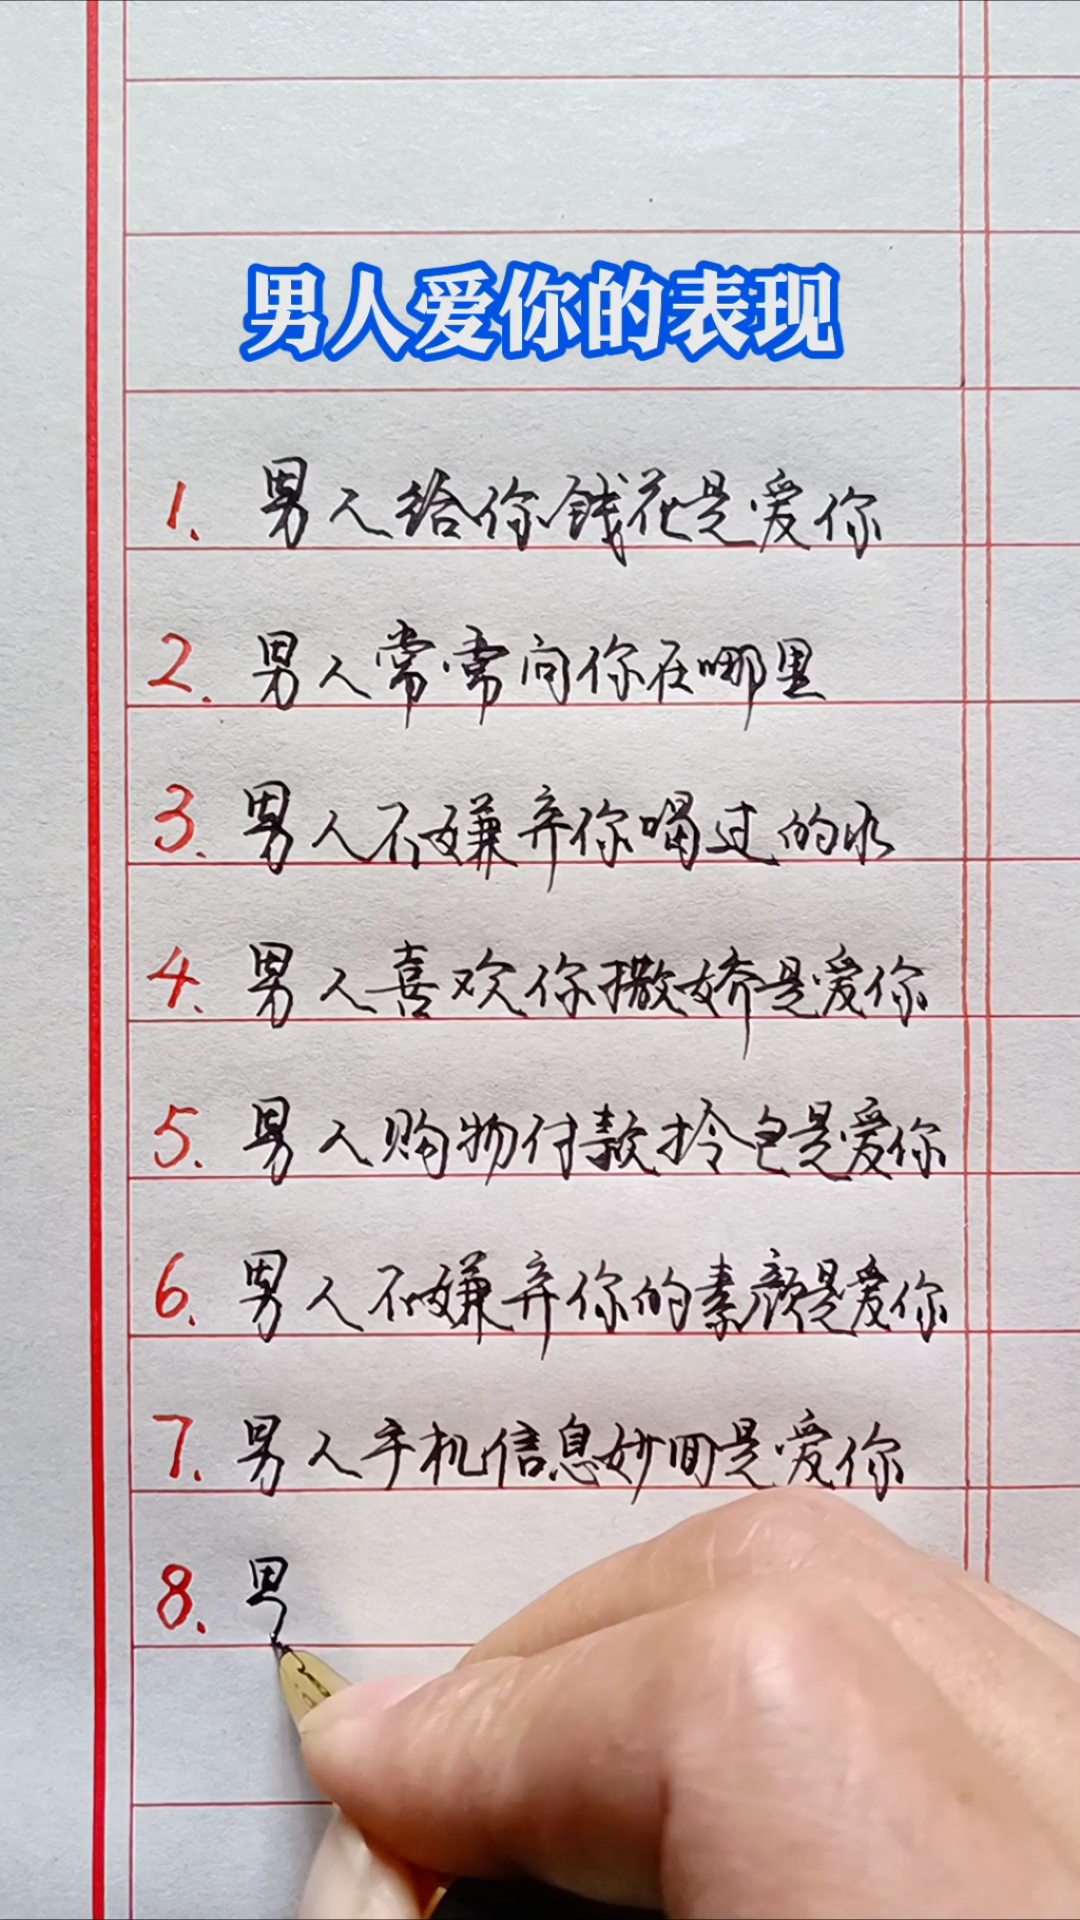 男人爱你的表现
1. 男人给你钱花是爱你
2. 男人常常问你在哪里
3. 男人不嫌弃你喝过的水
4. 男人喜欢你撒娇是爱你
5. 男人购物付款拎包是爱你
6. 男人不嫌弃你的素颜是爱你
7. 男人手机信息妙回是爱你
8. 男